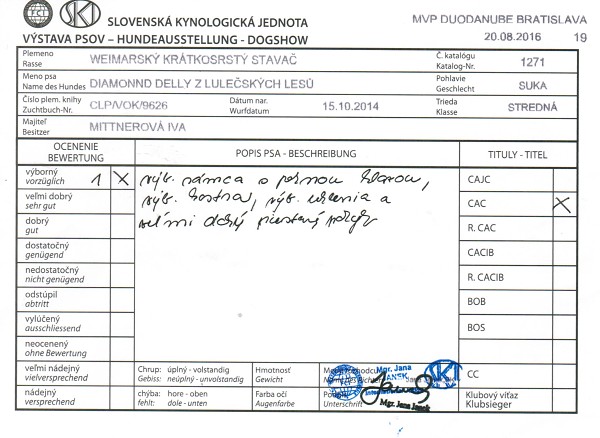 FCI SKJ SLOVENSKÁ KYNOLOGICKÁ JEDNOTA
MVP DUODANUBE BRATISLAVA
VÝSTAVA PSOV – HUNDEAUSSTELLUNG - DOGSHOW
20.08.2016 19
Plemeno
Rasse
WEIMARSKÝ KRÁTKOSRSTÝ STAVAČ
Č. katalógu
Katalog-Nr.
1271
Meno psa
Name des Hundes
DIAMONND DELLY Z LULEČSKÝCH LESŮ
Pohlavie
Geschlecht
SUKA
Číslo plem. knihy
Zuchtbuch-Nr.
CLP/VOK/9626
Dátum nar.
Wurfdatum
15.10.2014
Trieda
Klasse
STREDNÁ
Majiteľ
Besitzer
MITTNEROVÁ IVA
OCENENIE
BEWERTUNG
POPIS PSA - BESCHREIBUNG
TITULY - TITEL
výborný
vorzüglich
1 X
veľmi dobrý
sehr gut
dobrý
gut
dostatočný
genügend
nedostatočný
nicht genügend
odstúpil
abtritt
vylúčený
ausschliessend
neocenený
ohne Bewertung
veľmi nádejný
vielversprechend
nádejný
versprechend
výb. a
výb. výb. a
veľmi dobrý
CAJC
CAC X
R. CAC
CACIB
R. CACIB
BOB
BOS
CC
Klubový víťaz
Klubsieger
Chrup: úplný - volstandig
Gebiss: neúplný - unvolstandig
chýba: hore - oben
fehlt: dole - unten
Hmotnosť
Gewicht
Farba očí
Augenfarbe
Unterschrift
Mgr. Jana
JANEK
Mgr. Jana Janek
SKJ